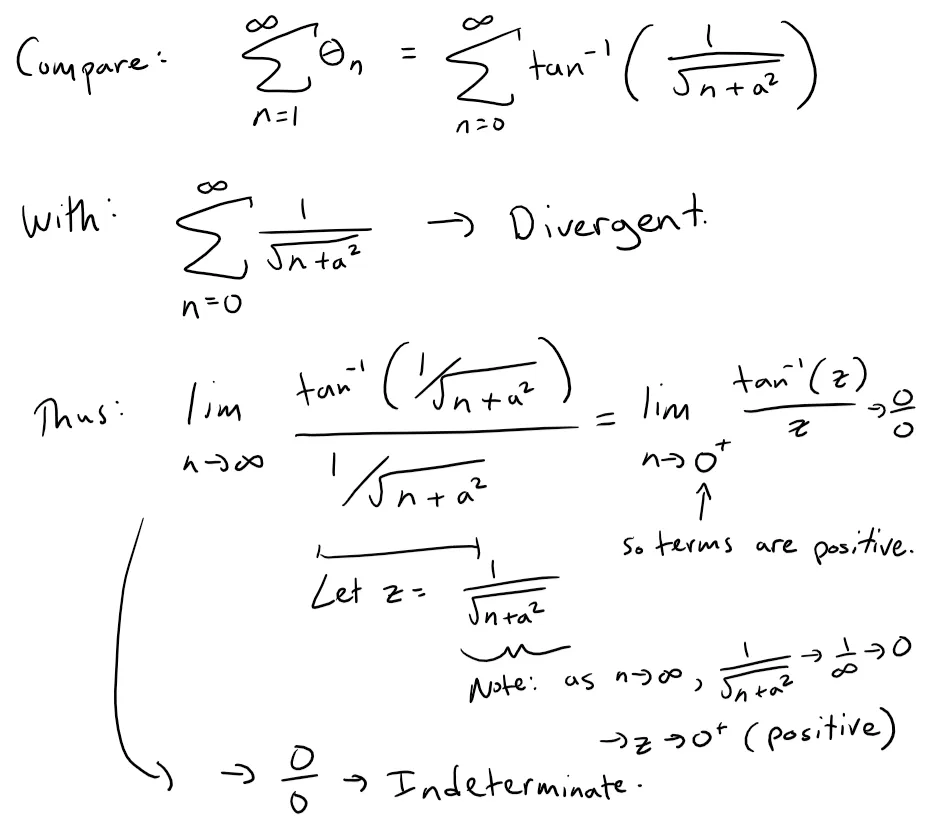 Compare: ∞ ∑ n=1 θn = ∞ ∑ n=0 tan⁻¹ ( 1 / √n + a² )
With: ∞ ∑ n=0 1 / √n + a² → Divergent.
Thus: lim n→∞ tan⁻¹ ( 1/√n + a² ) / 1/√n + a² = lim n→0⁺ tan⁻¹(z) / z → 0/0
↑
so terms are positive.
Let z = 1 / √n+a²
Note: as n→∞, 1 / √n+a² → 1/∞ → 0
→ z → 0⁺ (positive)
→ 0/0 → Indeterminate.